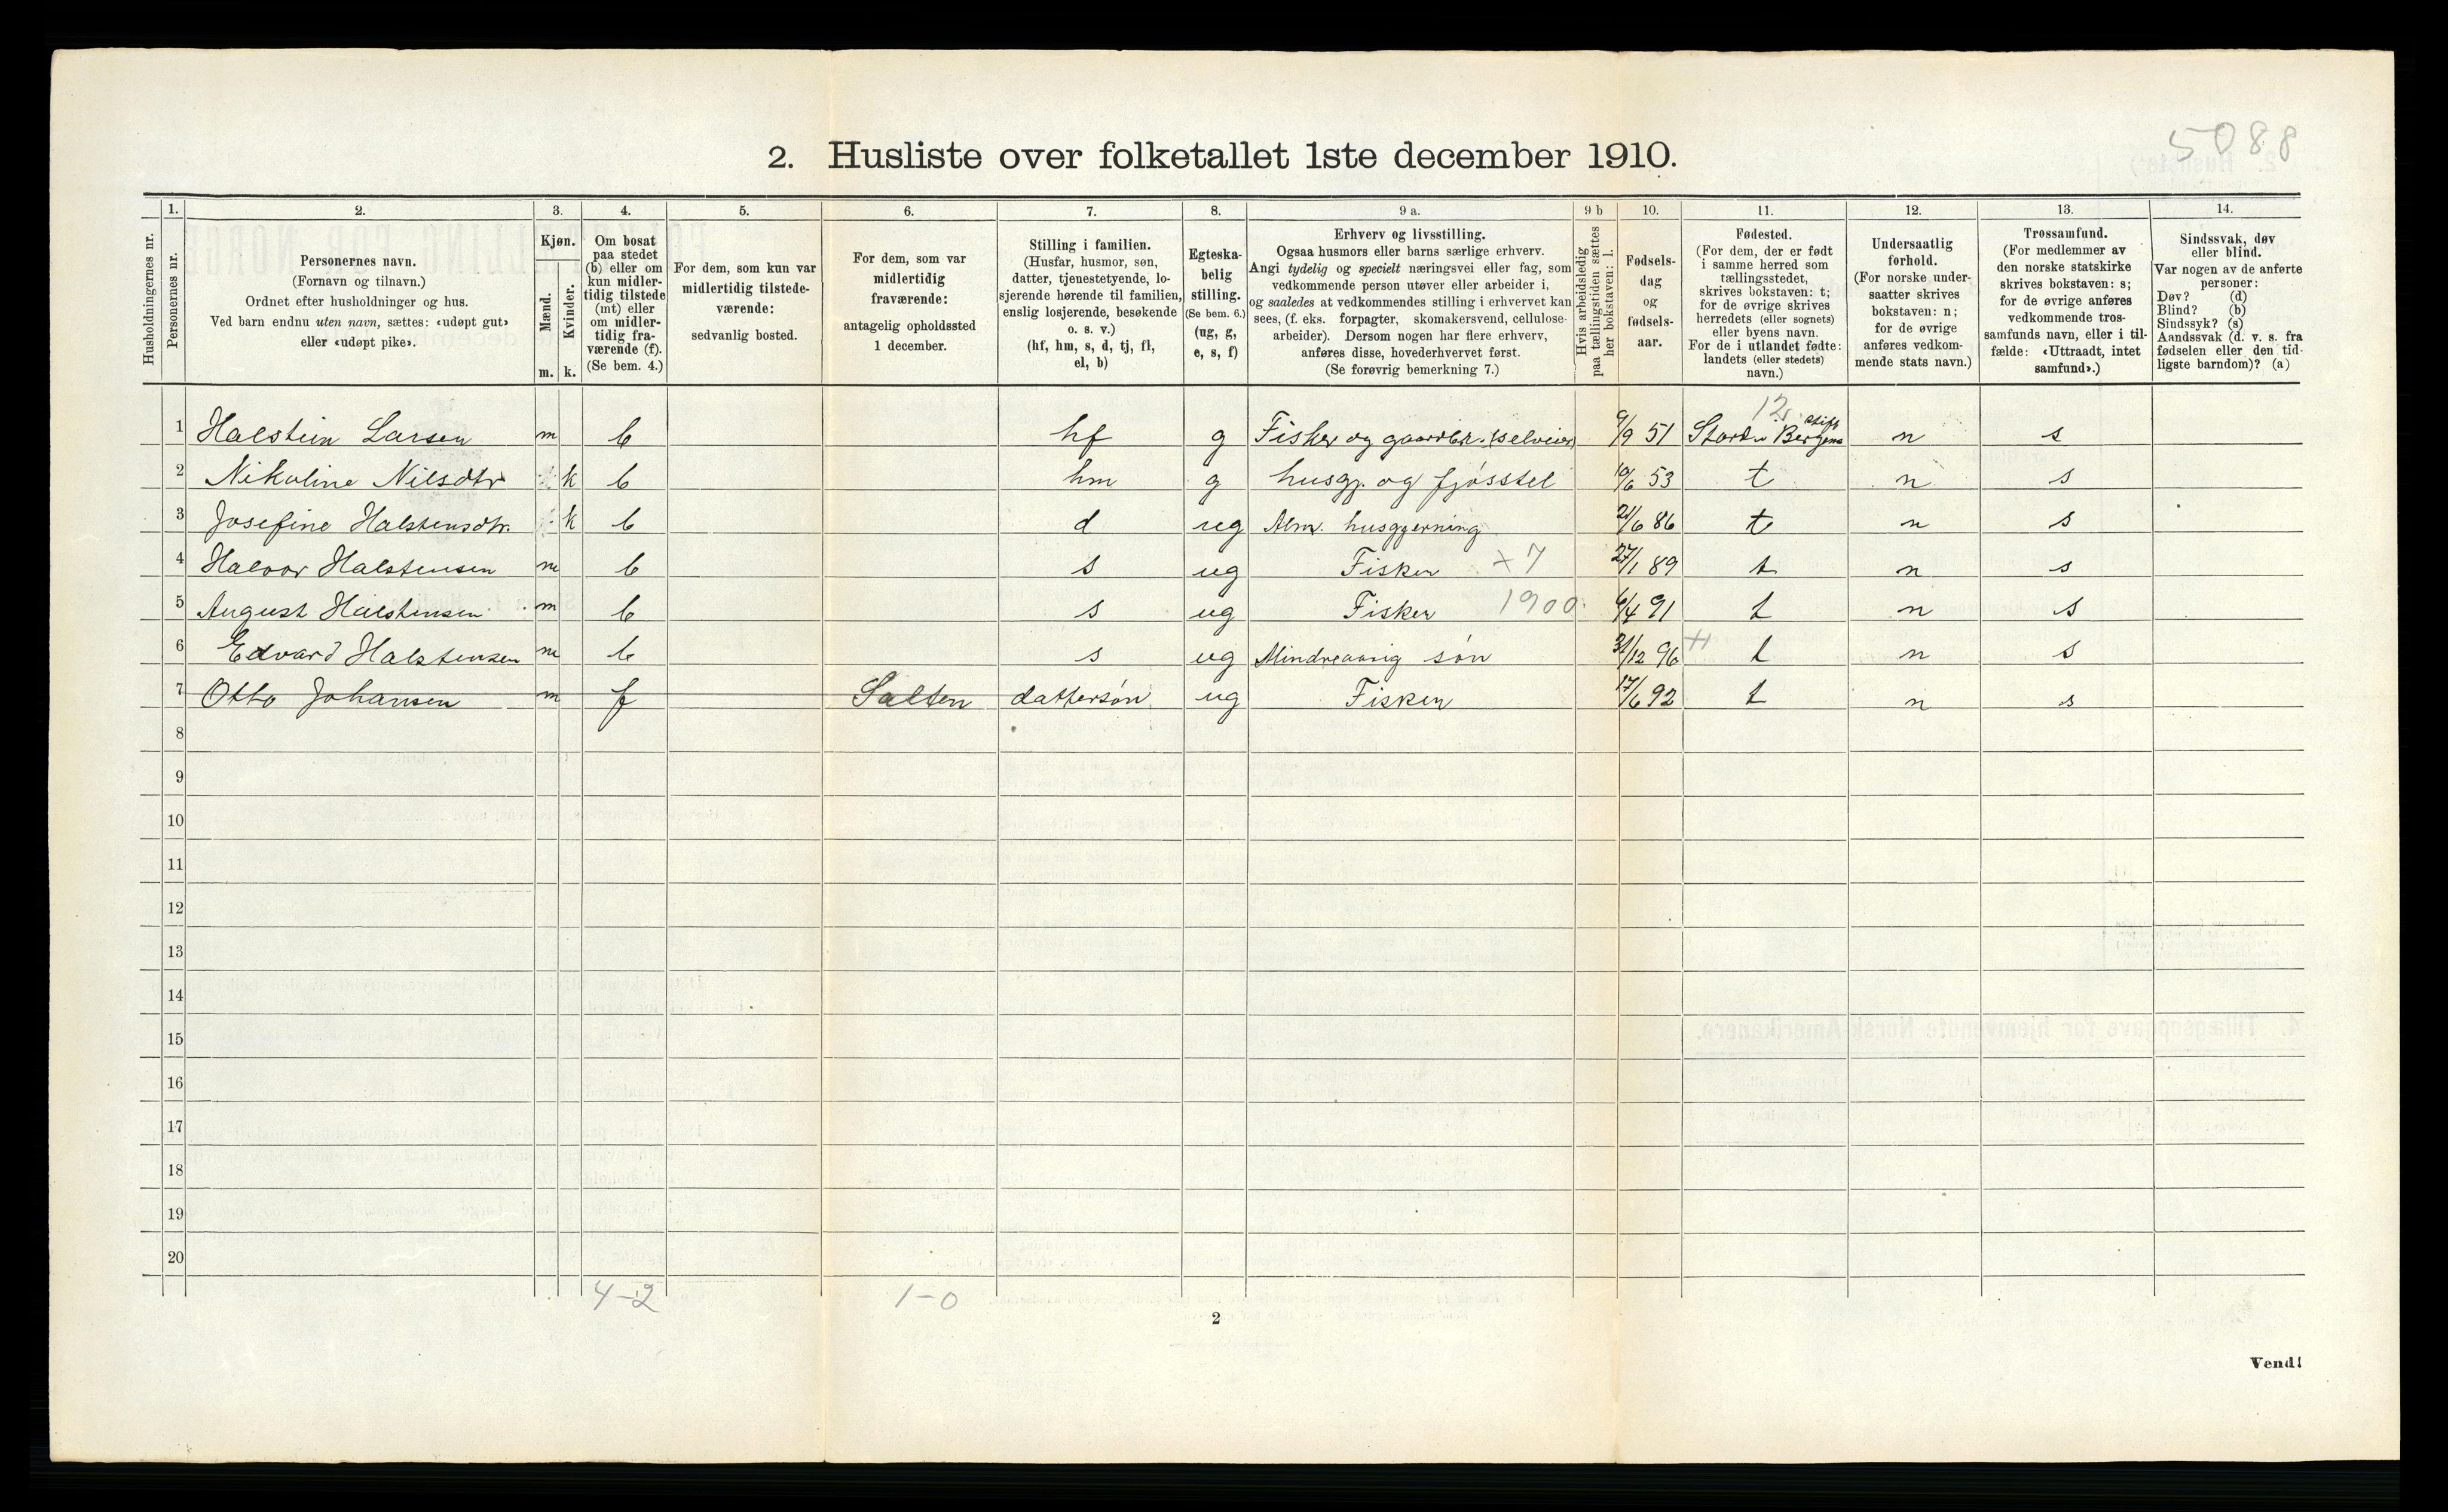 5088
2. Husliste over folketallet 1ste december 1910.
Husholdningernes nr.
1. Personernes nr.
2. Personernes navn.
(Fornavn og tilnavn.)
Ordnet efter husholdninger og hus.
Ved barn endnu uten navn, sættes: «udøpt gut»
eller «udøpt pike».
3. Kjøn.
Mænd. Kvinder.
m. k.
4. Om bosat
paa stedet
(b) eller om
kun midler-
tidig tilstede
(mt) eller
om midler-
tidig fra-
værende (f).
(Se bem. 4.)
5. For dem, som kun var
midlertidig tilstede-
værende:
sedvanlig bosted.
6. For dem, som var
midlertidig
fraværende:
antagelig opholdssted
1 december.
7. Stilling i familien.
(Husfar, husmor, søn,
datter, tjenestetyende, lo-
sjerende hørende til familien,
enslig losjerende, besøkende
o. s. v.)
(hf, hm, s, d, tj, fl,
el, b)
8. Egteska-
belig
stilling.
(Se bem. 6.)
(ug, g,
e, s, f)
9 a. Erhverv og livsstilling.
Ogsaa husmors eller barns særlige erhverv.
Angi tydelig og specielt næringsvei eller fag, som
vedkommende person utøver eller arbeider i,
og saaledes at vedkommendes stilling i erhvervet kan
sees, (f. eks. forpagter, skomakersvend, cellulose-
arbeider). Dersom nogen har flere erhverv,
anføres disse, hovederhvervet først.
(Se forøvrig bemerkning 7.)
9 b Hvis arbeidsledig
paa tællingstiden sættes
her bokstaven: l.
10. Fødsels-
dag
og
fødsels-
aar.
11. Fødested.
(For dem, der er født
i samme herred som
tællingsstedet,
skrives bokstaven: t;
for de øvrige skrives
herredets (eller sognets)
eller byens navn.
For de i utlandet fødte:
landets (eller stedets)
navn.)
12. Undersaatlig
forhold.
(For norske under-
saatter skrives
bokstaven: n;
for de øvrige
anføres vedkom-
mende stats navn.)
13. Trossamfund.
(For medlemmer av
den norske statskirke
skrives bokstaven: s;
for de øvrige anføres
vedkommende tros-
samfunds navn, eller i til-
fælde: «Uttraadt, intet
samfund».)
14. Sindssvak, døv
eller blind.
Var nogen av de anførte
personer:
Døv? (d)
Blind? (b)
Sindssyk? (s)
Aandssvak (d. v. s. fra
fødselen eller den tid-
ligste barndom)? (a)
12
1 Halstein Larsen m b hf g Fisker og gaardbr. (selveier) 9/9 51 Stord i Bergens stift n s
2 Nikoline Nilsdtr k b hm g husgj. og fjósstel 10/6 53 t n s
3 Josefine Halstensdtr. k b d ug Alm. husgjerning 21/6 86 t n s
4 Halvor Halstensen m b s ug Fisker +7 27/1 89 t n s
5 August Halstensen m b s ug Fisker 1900 6/4 91 t n s
6 Edvard Halstensen m b s ug Mindreaarig són 31/12 96 t n s
7 Otto Johansen m f Salten dattersón ug Fisker 17/6 92 t n s
8
9
10
11
12
13
14
15
16
17
18
19
20
4-2 1-0
2
Vend!